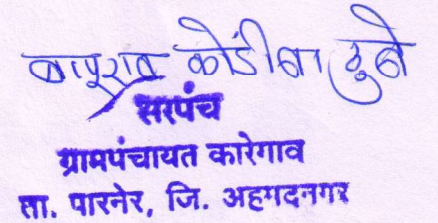 बापूराव कोंडीबा ठुबे
सरपंच
ग्रामपंचायत कारेगाव
ता. पारनेर, जि. अहमदनगर